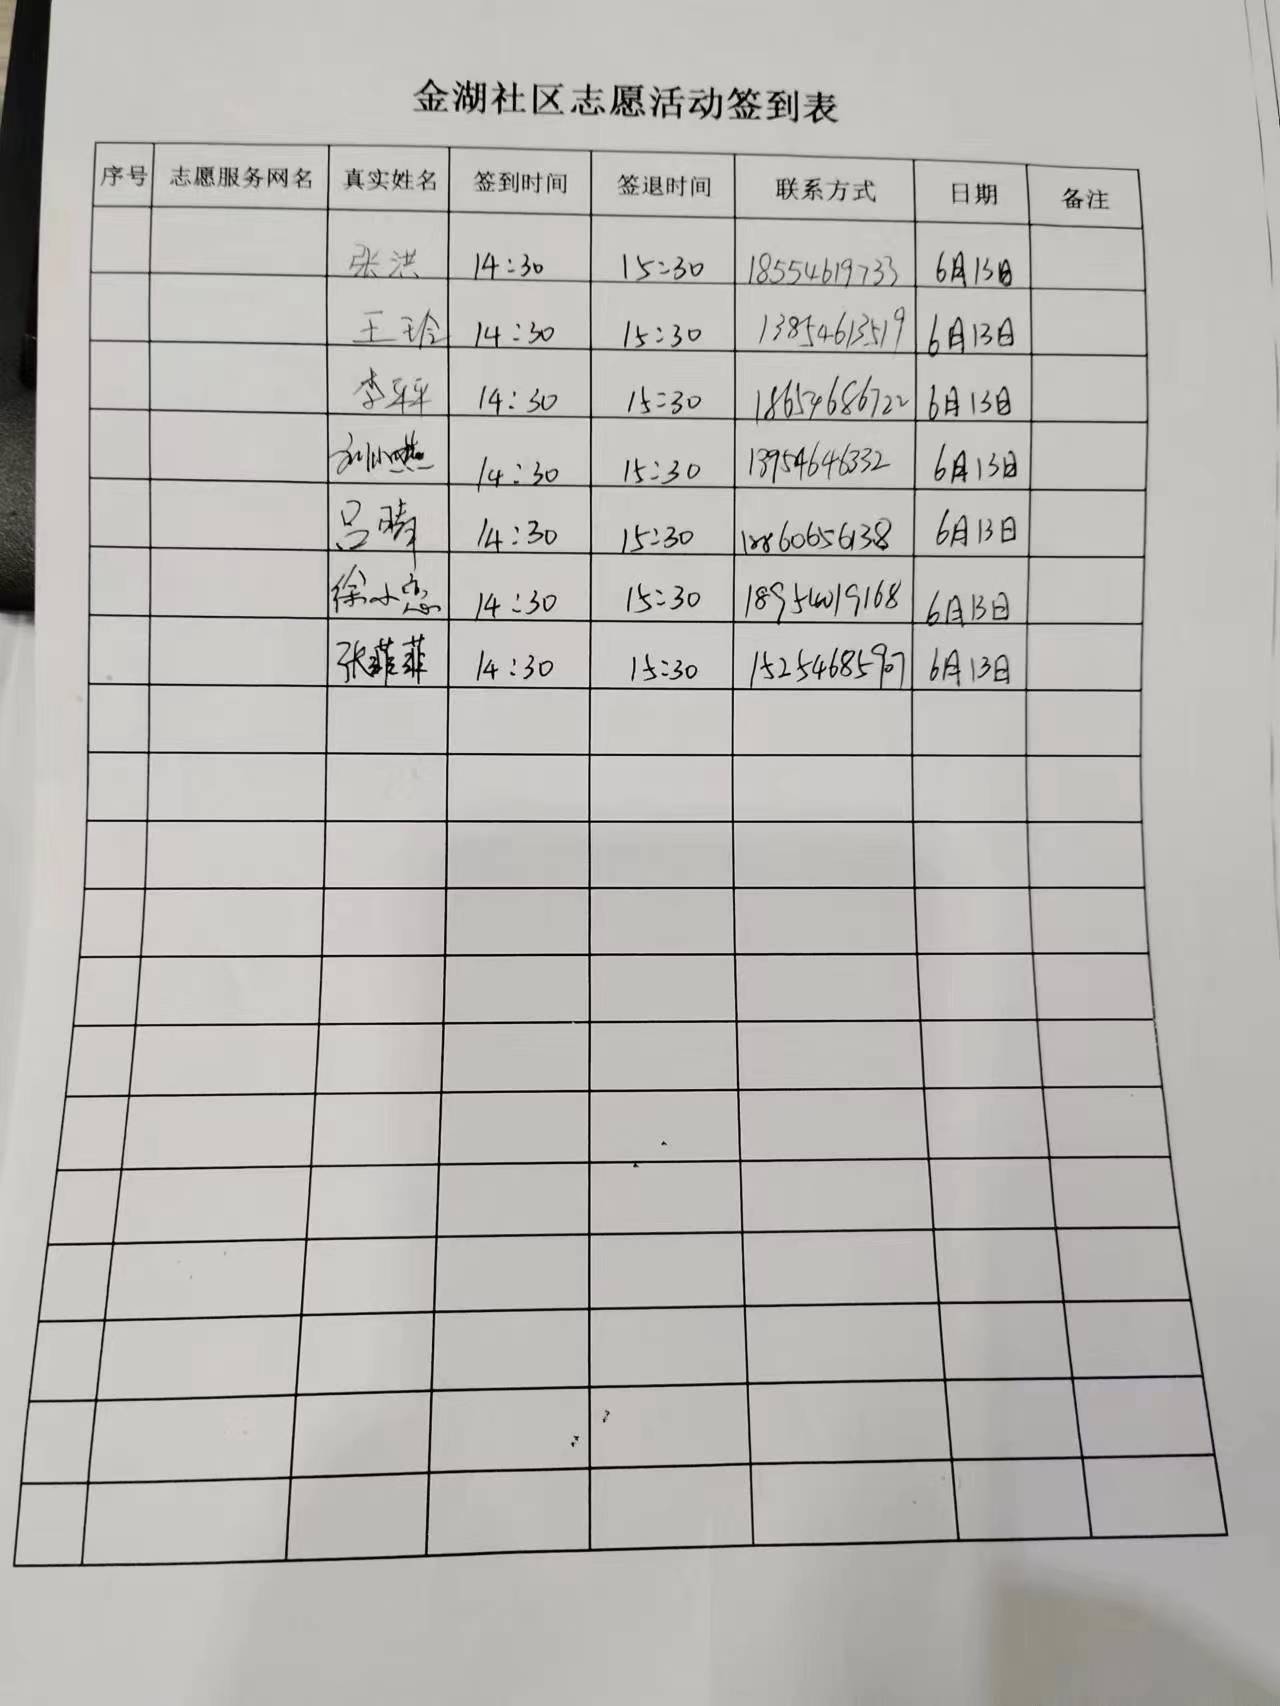 金湖社区志愿活动签到表
序号 志愿服务网名 真实姓名 签到时间 签退时间 联系方式 日期 备注
张洪 14:30 15:30 18554619733 6月13日
王玲 14:30 15:30 13854613519 6月13日
李 14:30 15:30 18654686722 6月13日
14:30 15:30 13954646332 6月13日
吕晴 14:30 15:30 6月13日
徐小 14:30 15:30 6月13日
张菲菲 14:30 15:30 15254685907 6月13日